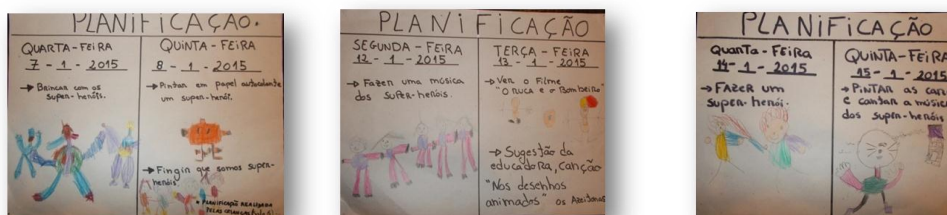 PLANIFICAÇÃO.
QUARTA-FEIRA
7 - 1 - 2015
→ Brincar com os
super-heróis.
QUINTA-FEIRA
8 - 1 - 2015
→ Pintar em papel autocolante
um super-herói.
→ Fingir que somos super-
heróis.
PLANIFICAÇÃO
SEGUNDA - FEIRA
12 - 1 - 2015
→ Fazer uma música
dos super-heróis.
TERÇA - FEIRA
13 - 1 - 2015
→ Ver o Filme
"O RUCA e o Bombeiro"
→ Sugestão da
educadora, canção
"Nos desenhos
animados" os
PLANIFICAÇÃO
Quarta - Feira
14 - 1 - 2015
→ Fazer um
super-herói.
QUINTA-FEIRA
15 - 1 - 2015
→ PINTAR as
e cantar a música
dos super-heróis